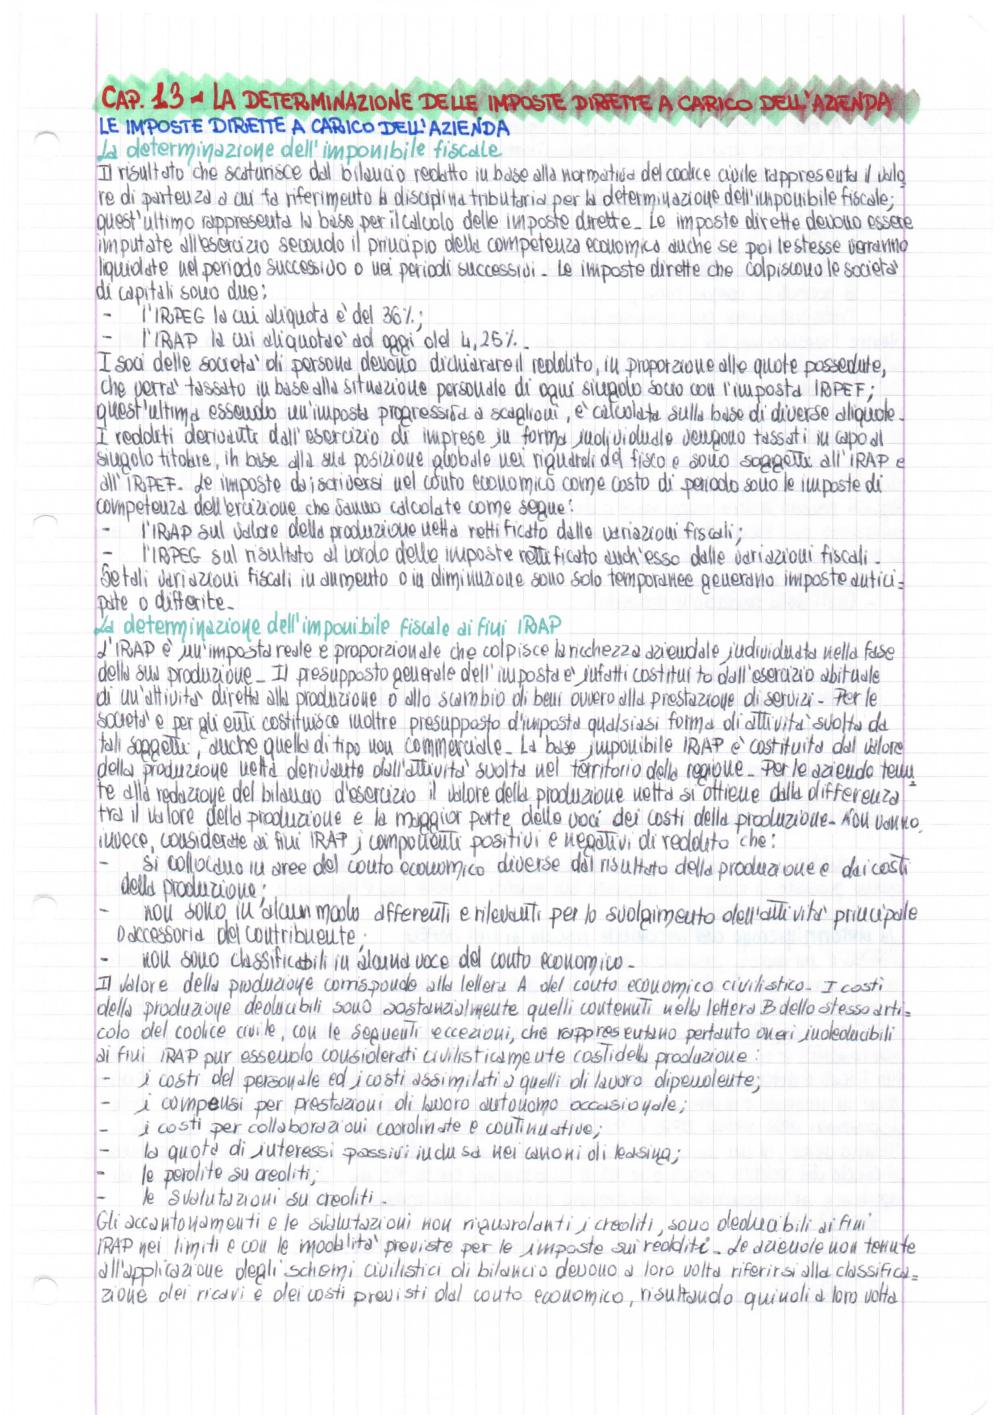 CAP. 13 - LA DETERMINAZIONE DELLE IMPOSTE DIRETTE A CARICO DELL'AZIENDA
LE IMPOSTE DIRETTE A CARICO DELL'AZIENDA
La determinazione dell'imponibile fiscale
Il risultato che scaturisce dal bilancio redatto in base alla normativa del codice civile rappresenta il valo
re di partenza a cui fa riferimento la disciplina tributaria per la determinazione dell'imponibile fiscale;
quest'ultimo rappresenta la base per il calcolo delle imposte dirette. Le imposte dirette devono essere
imputate all'esercizio secondo il principio della competenza economica anche se poi le stesse verranno
liquidate nel periodo successivo o nei periodi successivi. Le imposte dirette che colpiscono le società
di capitali sono due:
- l'IRPEG la cui aliquota è del 36%;
- l'IRAP la cui aliquota è ad oggi del 4,25%.
I soci delle società di persona devono dichiarare il reddito, in proporzione alle quote possedute,
che verrà tassato in base alla situazione personale di ogni singolo socio con l'imposta IRPEF;
quest'ultima essendo un'imposta progressiva a scaglioni, è calcolata sulla base di diverse aliquote.
I redditi derivante dall'esercizio di imprese in forma individuale vengono tassati in capo al
singolo titolare, in base alla sua posizione globale nei riguardi del fisco e sono soggette all'IRAP e
all'IRPEF. Le imposte da iscriversi nel conto economico come costo di periodo sono le imposte di
competenza dell'ercizione che vanno calcolate come segue:
- l'IRAP sul valore della produzione netta rettificato dalle variazioni fiscali;
- l'IRPEG sul risultato al lordo delle imposte rettificato anch'esso dalle variazioni fiscali.
Se tali variazioni fiscali in aumento o in diminuzione sono solo temporanee generano imposte antici=
pate o differite.
La determinazione dell'imponibile fiscale ai fini IRAP
L'IRAP è un'imposta reale e proporzionale che colpisce la ricchezza aziendale individuata nella fase
della sua produzione. Il presupposto generale dell'imposta è infatti costituito dall'esercizio abituale
di un'attività diretta alla produzione o allo scambio di beni ovvero alla prestazione di servizi. Per le
società e per gli enti costituisce inoltre presupposto d'imposta qualsiasi forma di attività svolta da
tali soggetti, anche quella di tipo non commerciale. La base imponibile IRAP è costituita dal valore
della produzione netta derivante dall'attività svolta nel territorio della regione. Per le aziende tenu
te alla redazione del bilancio d'esercizio il valore della produzione netta si ottiene dalla differenza
tra il valore della produzione e la maggior parte delle voci dei costi della produzione. Non vanno,
invece, considerate ai fini IRAP i componenti positivi e negativi di reddito che:
- si collocano in aree del conto economico diverse dal risultato della produzione e dai costi
della produzione;
- non sono in alcun modo afferenti e rilevanti per lo svolgimento dell'attività principale
o accessoria del contribuente;
- non sono classificabili in alcuna voce del conto economico.
Il valore della produzione corrisponde alla lettera A del conto economico civilistico. I costi
della produzione deducibili sono sostanzialmente quelli contenuti nella lettera B dello stesso arti=
colo del codice civile, con le seguenti eccezioni, che rappresentano pertanto oneri indeducibili
ai fini IRAP pur essendo considerati civilisticamente costi della produzione:
- i costi del personale ed i costi assimilati a quelli di lavoro dipendente;
- i compensi per prestazioni di lavoro autonomo occasionale;
- i costi per collaborazioni coordinate e continuative;
- la quota di interessi passivi inclusa nei canoni di leasing;
- le perdite su crediti;
- le svalutazioni su crediti.
Gli accantonamenti e le svalutazioni non riguardanti i crediti, sono deducibili ai fini
IRAP nei limiti e con le modalità previste per le imposte sui redditi. Le aziende non tenute
all'applicazione degli schemi civilistici di bilancio devono a loro volta riferirsi alla classifica=
zione dei ricavi e dei costi previsti dal conto economico, risultando quindi a loro volta